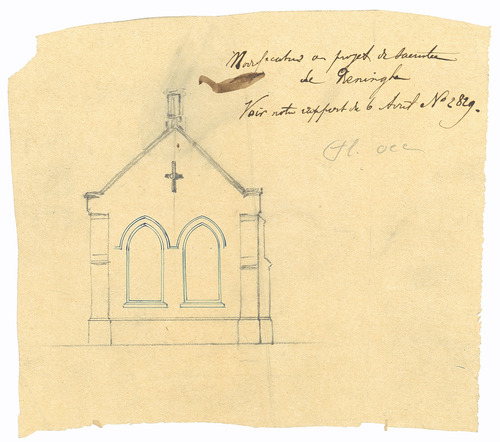 Modification au projet de sacristie
de Reninghe
Voir notre rapport de 6 Avril No 2829.